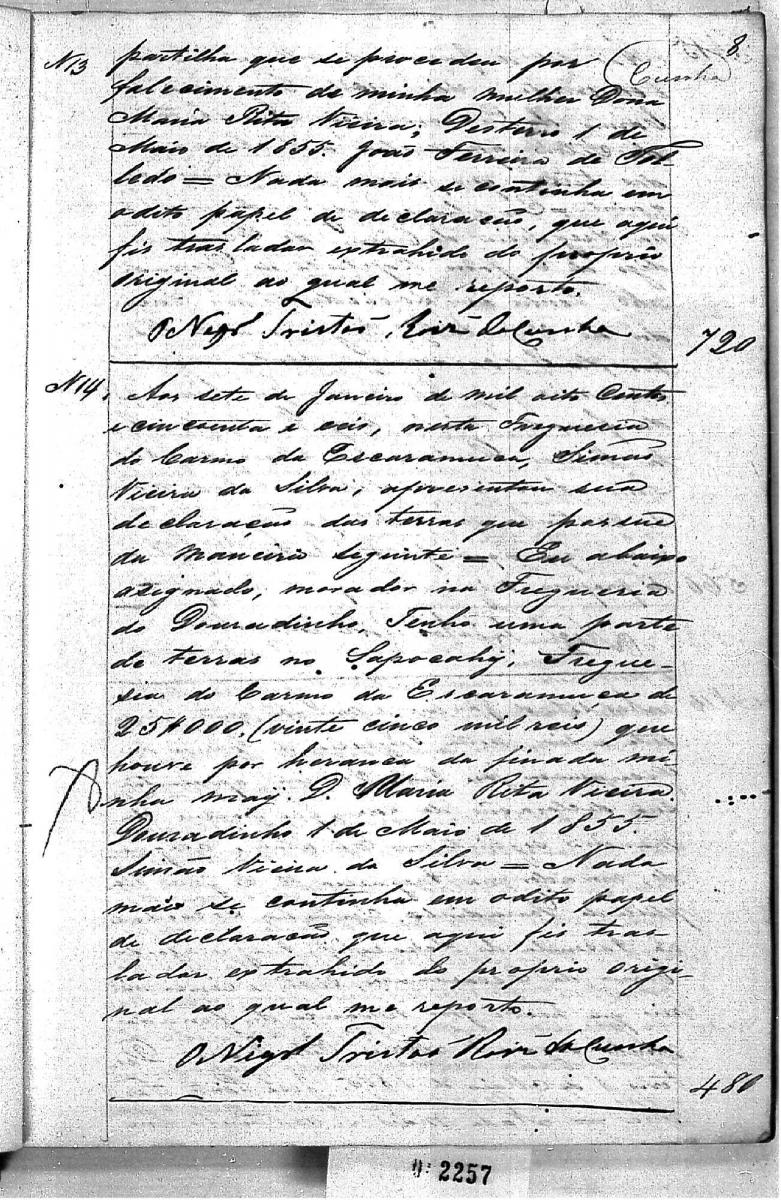 8
Cunha
N13 partilha que se procedeu por
falecimento de minha mulher Dona
Maria Rita Vieira; Desterro 1 de
Maio de 1855. João Ferreira de Tol-
ledo = Nada mais se continha em
odito papel de declaração, que aqui
fis trasladar extrahido do proprio
original ao qual me reporto.
O Vigrº Tristaõ Roiz da Cunha
720
N14 Aos sete de Janeiro de mil oito Centos
e cincoenta e seis, nesta Freguecia
do Carmo da Escaramuca, Simaõ
Vieira da Silva, aprezentou sua
declaração das terras que possue
da maneira seguinte = Eu abaixo
asignado, morador na Freguezia
do Douradinho, Tenho uma parte
de terras no Sapocahy, Fregue-
sia do Carmo da Escaramuca de
25$000. (vinte cinco mil reis) que
houve por heranca da finada mi-
nha may. D. Maria Rita Vieira.
Douradinho 1 de Maio de 1855.
Simão Vieira da Silva = Nada
mais se continha em odito papel
de declaracão que aqui fis tras-
ladar extrahido do proprio origi-
nal ao qual me reporto.
O Vigrº Tristaõ Roiz da Cunha
480
2257